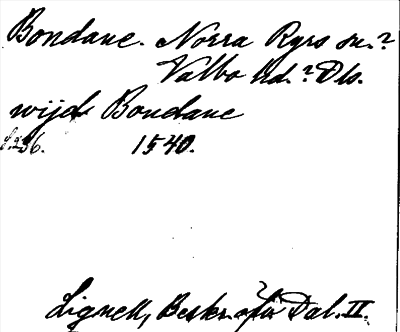 Bondane. Norra Ryrs sn.?
Valbo hd.? Dls.
wijd Bondane
s. 236. 1540.
Lignell, Beskr. öfv. Dal. II.